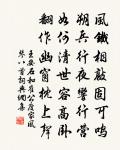 風鐵相敲固可鳴
朔兵行夜響行營
如何清世容高臥
翻作幽窗枕上聲
王安石和崔公度家風
琴八首詞典網集